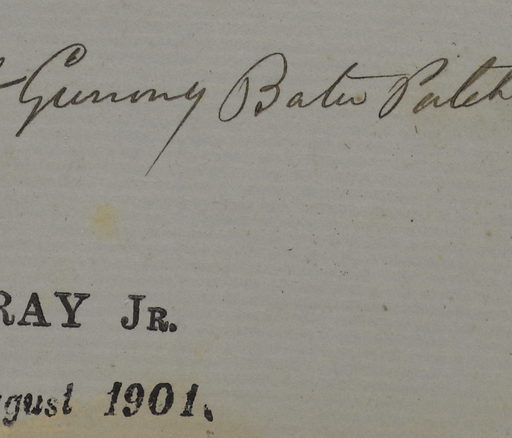 Gunong Batu Patch
RAY JR.
gust 1901.